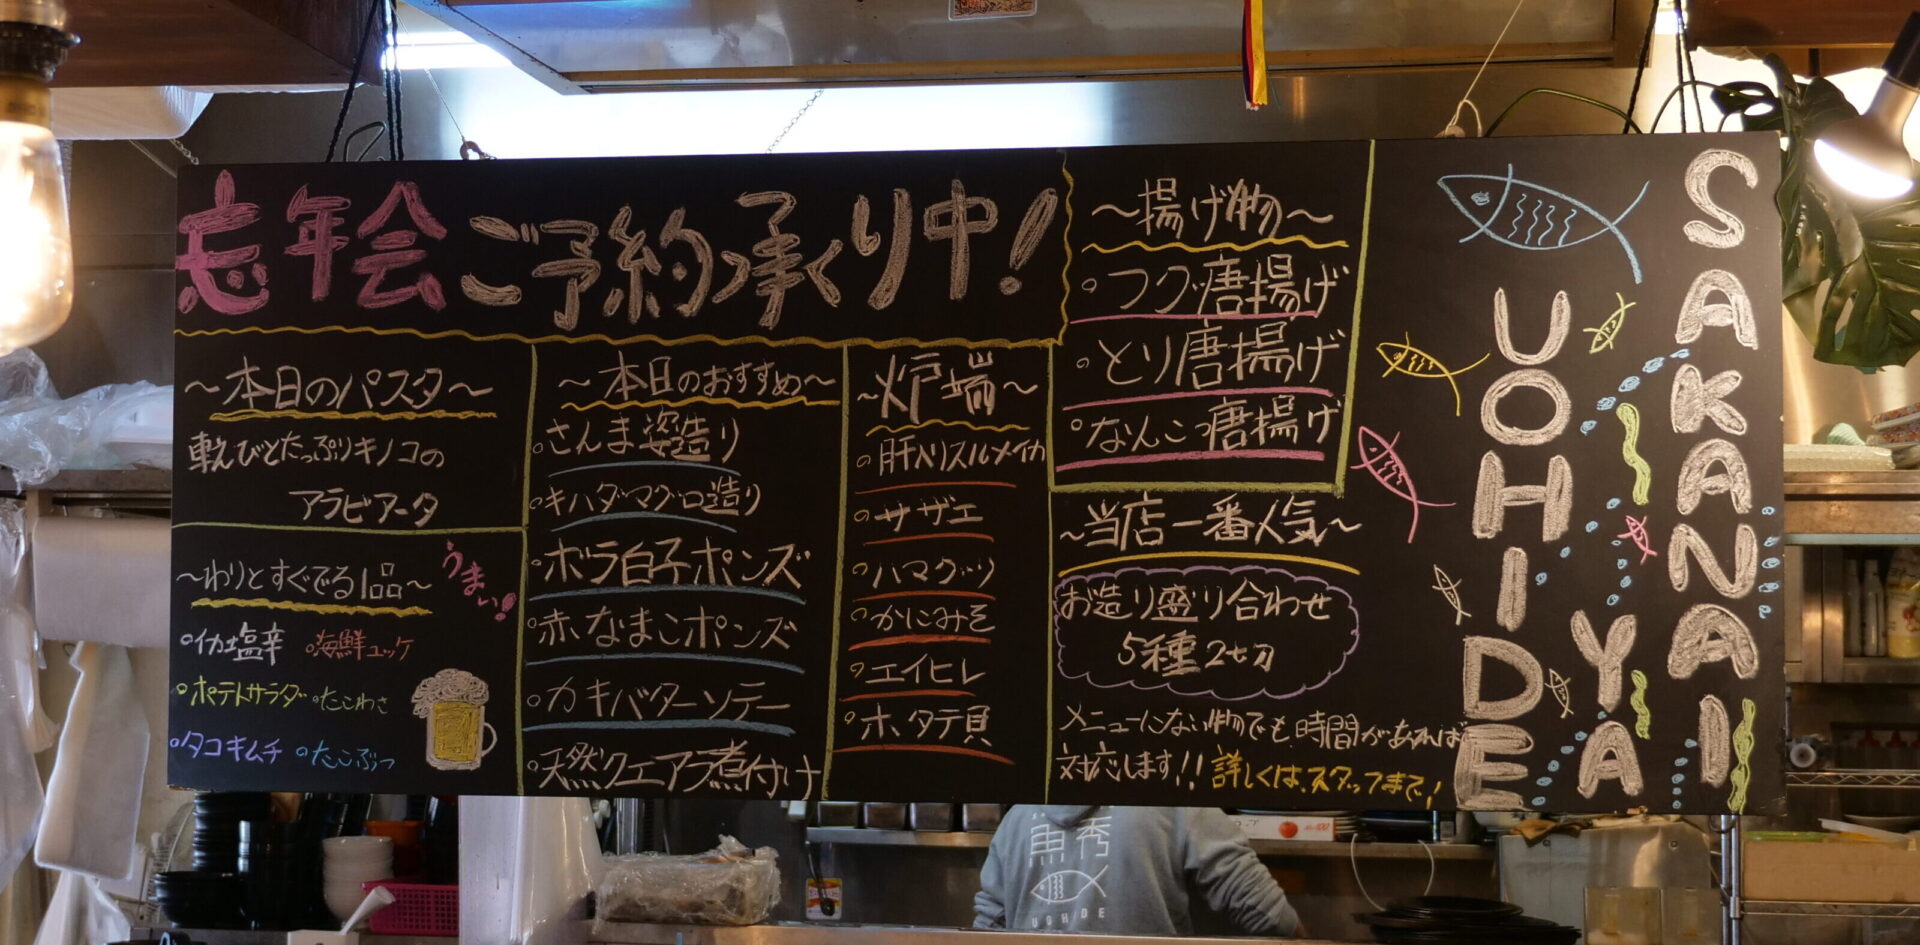 忘年会ご予約承くり中!
~本日のパスタ~
車えびとたっぷりキノコの
アラビアータ
~わりとすぐでる1品~
うまい!
イカ塩辛 海鮮ユッケ
ポテトサラダ たこわさ
タコキムチ たこぶつ
~本日のおすすめ~
さんま姿造り
キハダマグロ造り
ボラ白子ポンズ
赤なまこポンズ
カキバターソテー
天然クエアラ煮付け
~炉端~
肝入りスルメイカ
サザエ
ハマグリ
かにみそ
エイヒレ
ホタテ貝
~揚げ物~
フグ唐揚げ
とり唐揚げ
なんこつ唐揚げ
~当店一番人気~
お造り盛り合わせ
5種2切
メニューにない物でも、時間があれば
対応します!! 詳しくは、スタッフまで!
SAKANAI
YA
UOHIDE
魚秀
UOHIDE